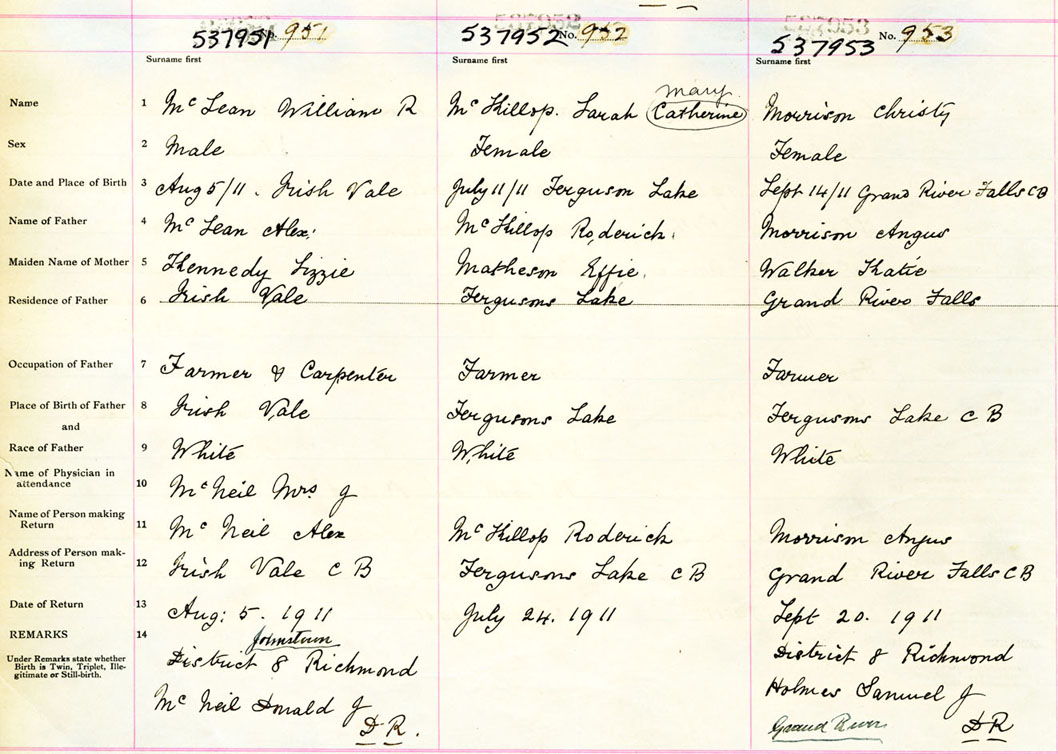 537951 No. 951 537952 No. 952 537953 No. 953
Surname first Surname first Surname first
Mary
Name 1 Mc Lean William R Mc Killop. Sarah Catherine Morrison Christy
Sex 2 Male Female Female
Date and Place of Birth 3 Aug 5/11. Irish Vale July 11/11 Ferguson Lake Sept 14/11 Grand River Falls CB
Name of Father 4 Mc Lean Alex: Mc Killop Roderick. Morrison Angus
Maiden Name of Mother 5 Kennedy Lizzie Matheson Effie. Walker Katie
Residence of Father 6 Irish Vale Fergusons Lake Grand River Falls
Occupation of Father 7 Farmer & Carpenter Farmer Farmer
Place of Birth of Father 8 Irish Vale Fergusons Lake Fergusons Lake C B
and
Race of Father 9 White White White
Name of Physician in
attendance 10 Mc Neil Mrs J
Name of Person making
Return 11 Mc Neil Alex Mc Killop Roderick Morrison Angus
Address of Person mak-
ing Return 12 Irish Vale C B Fergusons Lake C B Grand River Falls C B
Date of Return 13 Aug: 5. 1911 July 24. 1911 Sept 20. 1911
REMARKS 14 Johnstown
Under Remarks state whether
Birth is Twin, Triplet, Ille-
gitimate or Still-birth.
District 8 Richmond District 8 Richmond
Mc Neil Donald J Holmes Samuel J
D R. Grand River D R